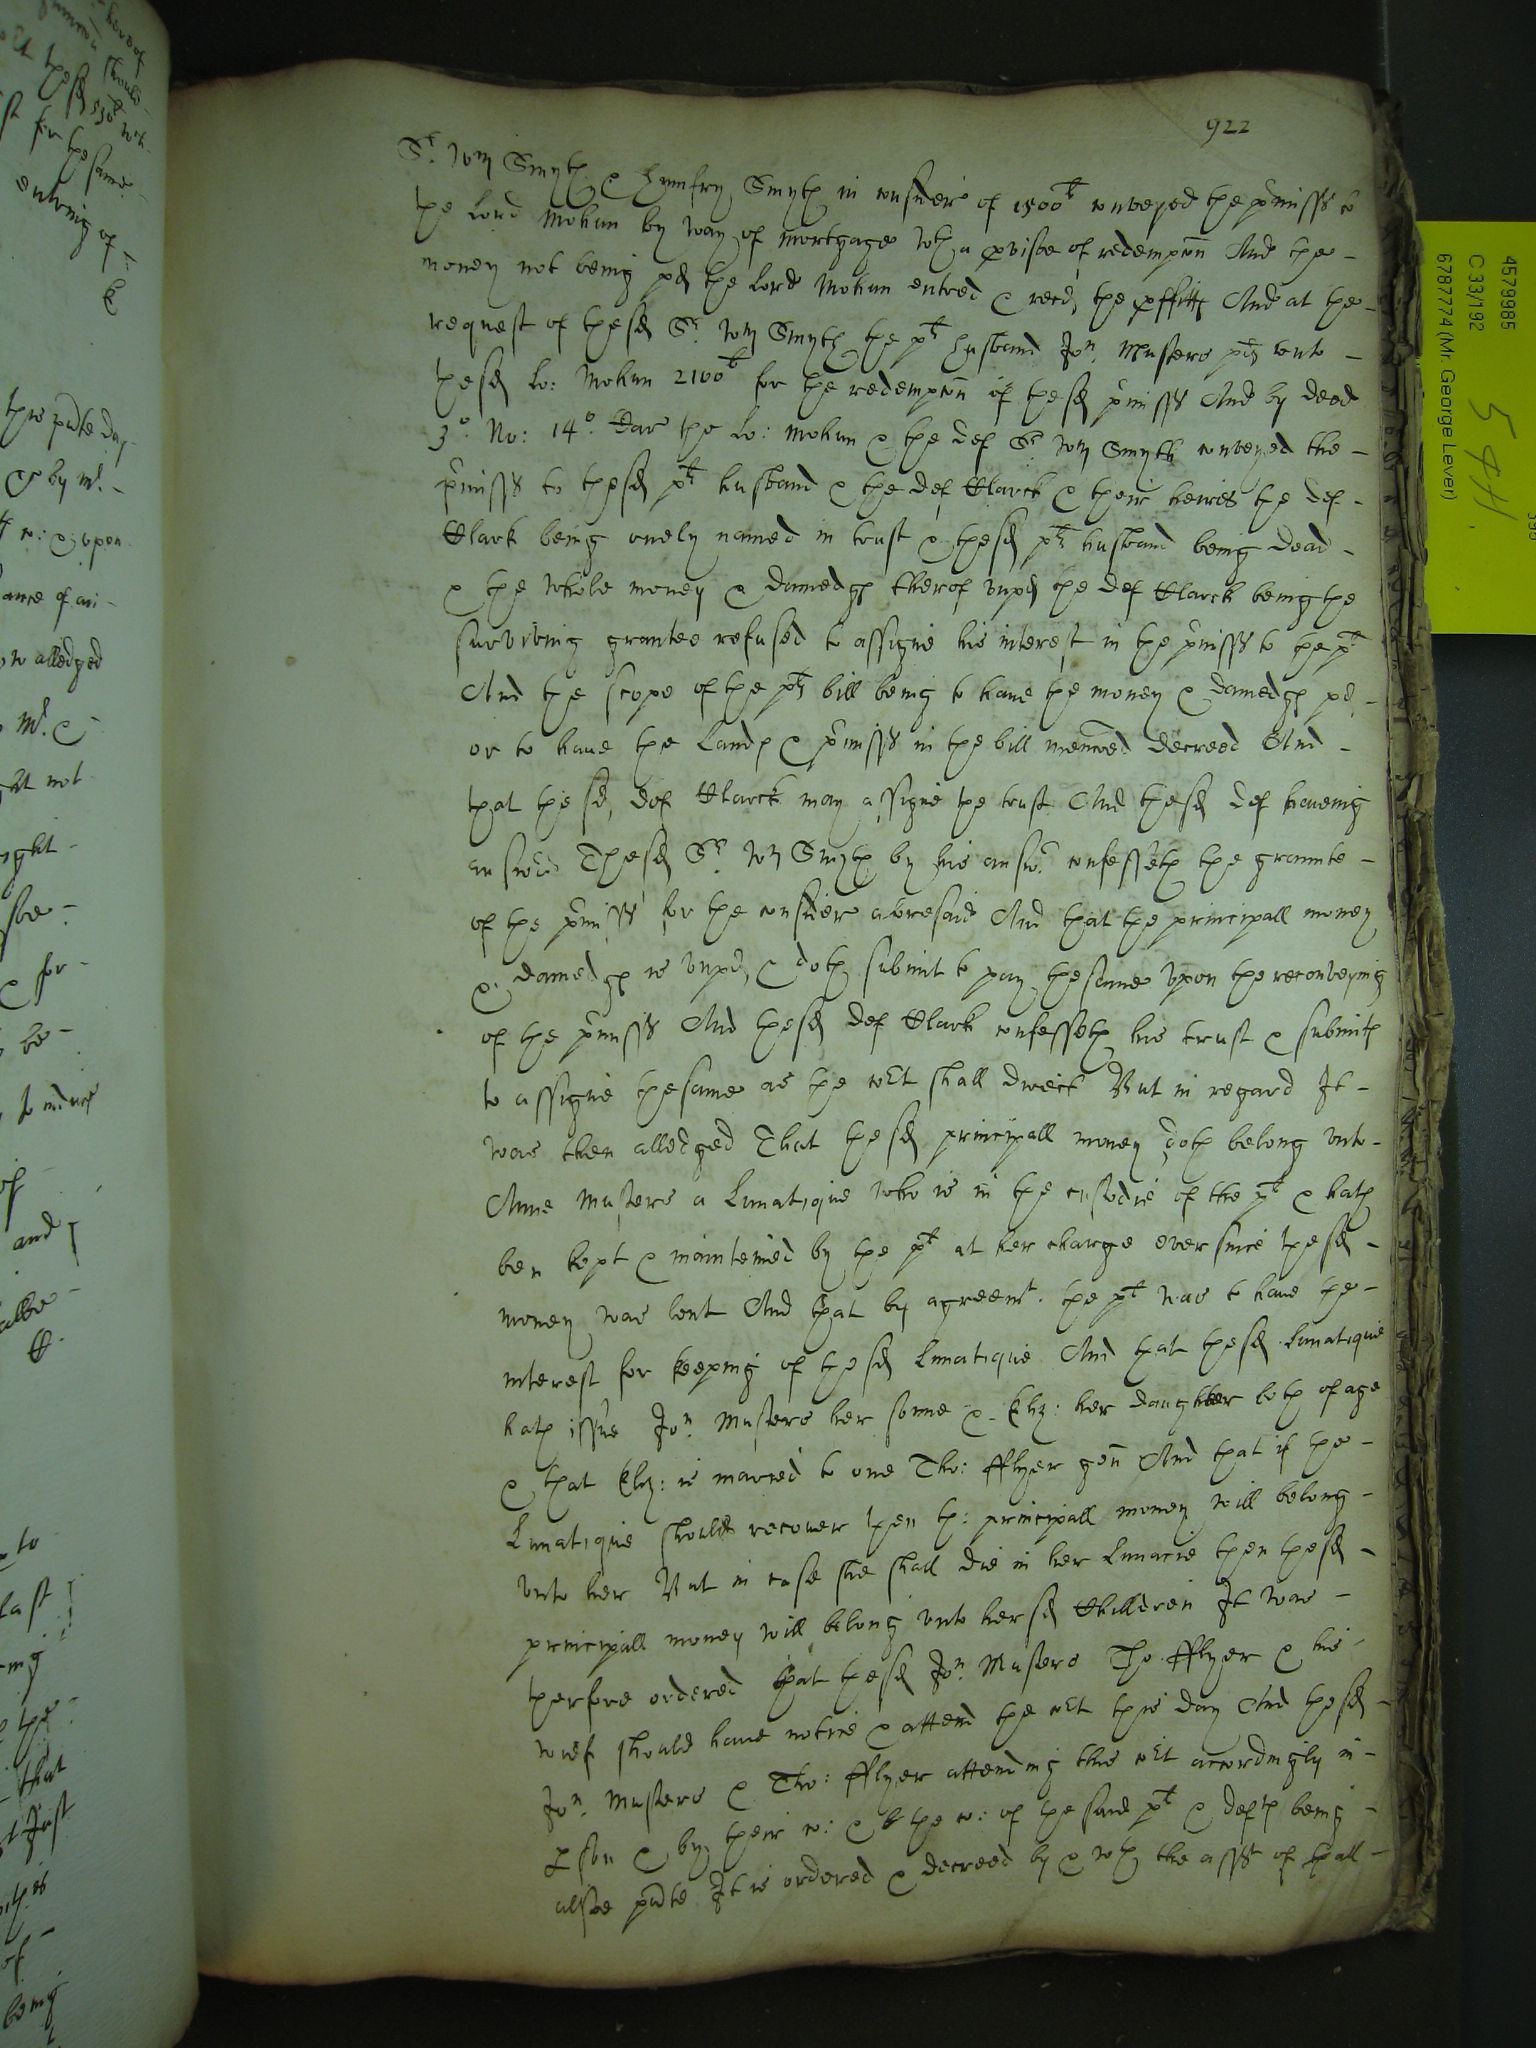 922
Sr. Wm Smyth & Humfry Smyth in consider of 1500l conveyed the pmisss to
the Lord Mohun by way of mortgage wth a pviso of redempcon And the
money not being pd the Lord Mohun entred & recd the pffitts And at the
request of the sd Sr. Wm Smyth the plt husband Jon. Masters pd unto
the sd Lo: Mohun 2100l for the redempcon of the sd pmisss And by deed
3o. No: 14o. Car the Lo: Mohun & the def Sr Wm Smyth conveyed the
pmisss to the sd plt husband & the def Clarck & their heires the def
Clark being onely named in trust & the sd plts husband being dead
& the whole money & damedgs therof unpd the def Clarck being the
surviving grantee refused to assigne his interest in the pmisss to the plt
And the scope of the plts bill being to have the money & damedgs pd
or to have the Lands & pmisss in the bill menconed decreed And
that the sd def Clarck may assigne the trust And the sd def haveing
answed The sd Sr. Wm Smyth by his answr confesseth the graunte
of the pmisss for the consider aforesaid And that the principall money
& damedgs is unpd & doth submit to pay the same upon the reconveying
of the pmisss And the sd def Clark confesseth his trust & submits
to assigne the same as the cort shall direct But in regard It
was then alledged That the sd principall money doth belong unto
Anne Masters a Lunatique who is in the custodie of the plt & hath
ben kept & mainteined by the plt at her charge ever since the sd
money was lent And that by agreemt. the plt was to have the
interest for keeping of the sd Lunatique And that the sd Lunatique
hath issue Jon. Masters her sonne & Eliz: her daughter both of age
& that Eliz: is maried to one Tho: fflyer gen And that if the
Lunatique should recover then the principall money will belong
unto her But in case she shall die in her Lunacie then the sd
principall money will belong unto her sd Children It was
therfore ordered that the sd Jon. Masters Tho fflyer & his
wief should have notice & attend the cort this day And the sd
Jon. Masters & Tho: fflyer attending this cort accordingly in
pson & by their co: & the co: of the said plt & defts being
alsoe pnte It is ordered & decreed by & wth the asst of all
4579985
C 33/192
6787774 (Mr. George Lever)
54H
this pnte day
& by Mr.
& upon
ance of an
alledged
Mr. &
not
ight
& for
be
of
and
to
last
ing
the
that
first
of
being